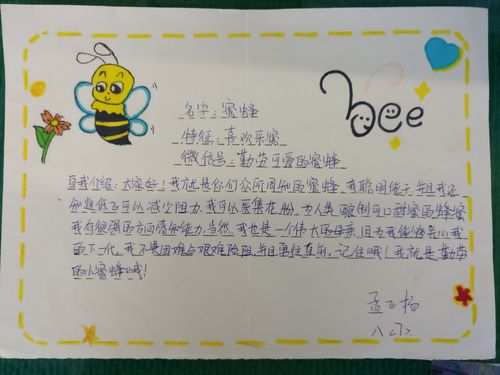 bee
名字：蜜蜂
特征：喜欢采蜜
微信号：勤劳可爱的蜜蜂
自我介绍：大家好！我就是你们众所周知的蜜蜂，我聪明能干，并且我还
知道低飞可以减少阻力，我可以采集花粉，为人类酿制可口甜蜜的蜂蜜
我有很强的方向感知能力，当然，我也是一个伟大的母亲，因为我能
的下一代，我不畏困难与艰难险阻，并且勇往直前。记住哦！我就是勤劳
的小蜜蜂哦！
孟
八